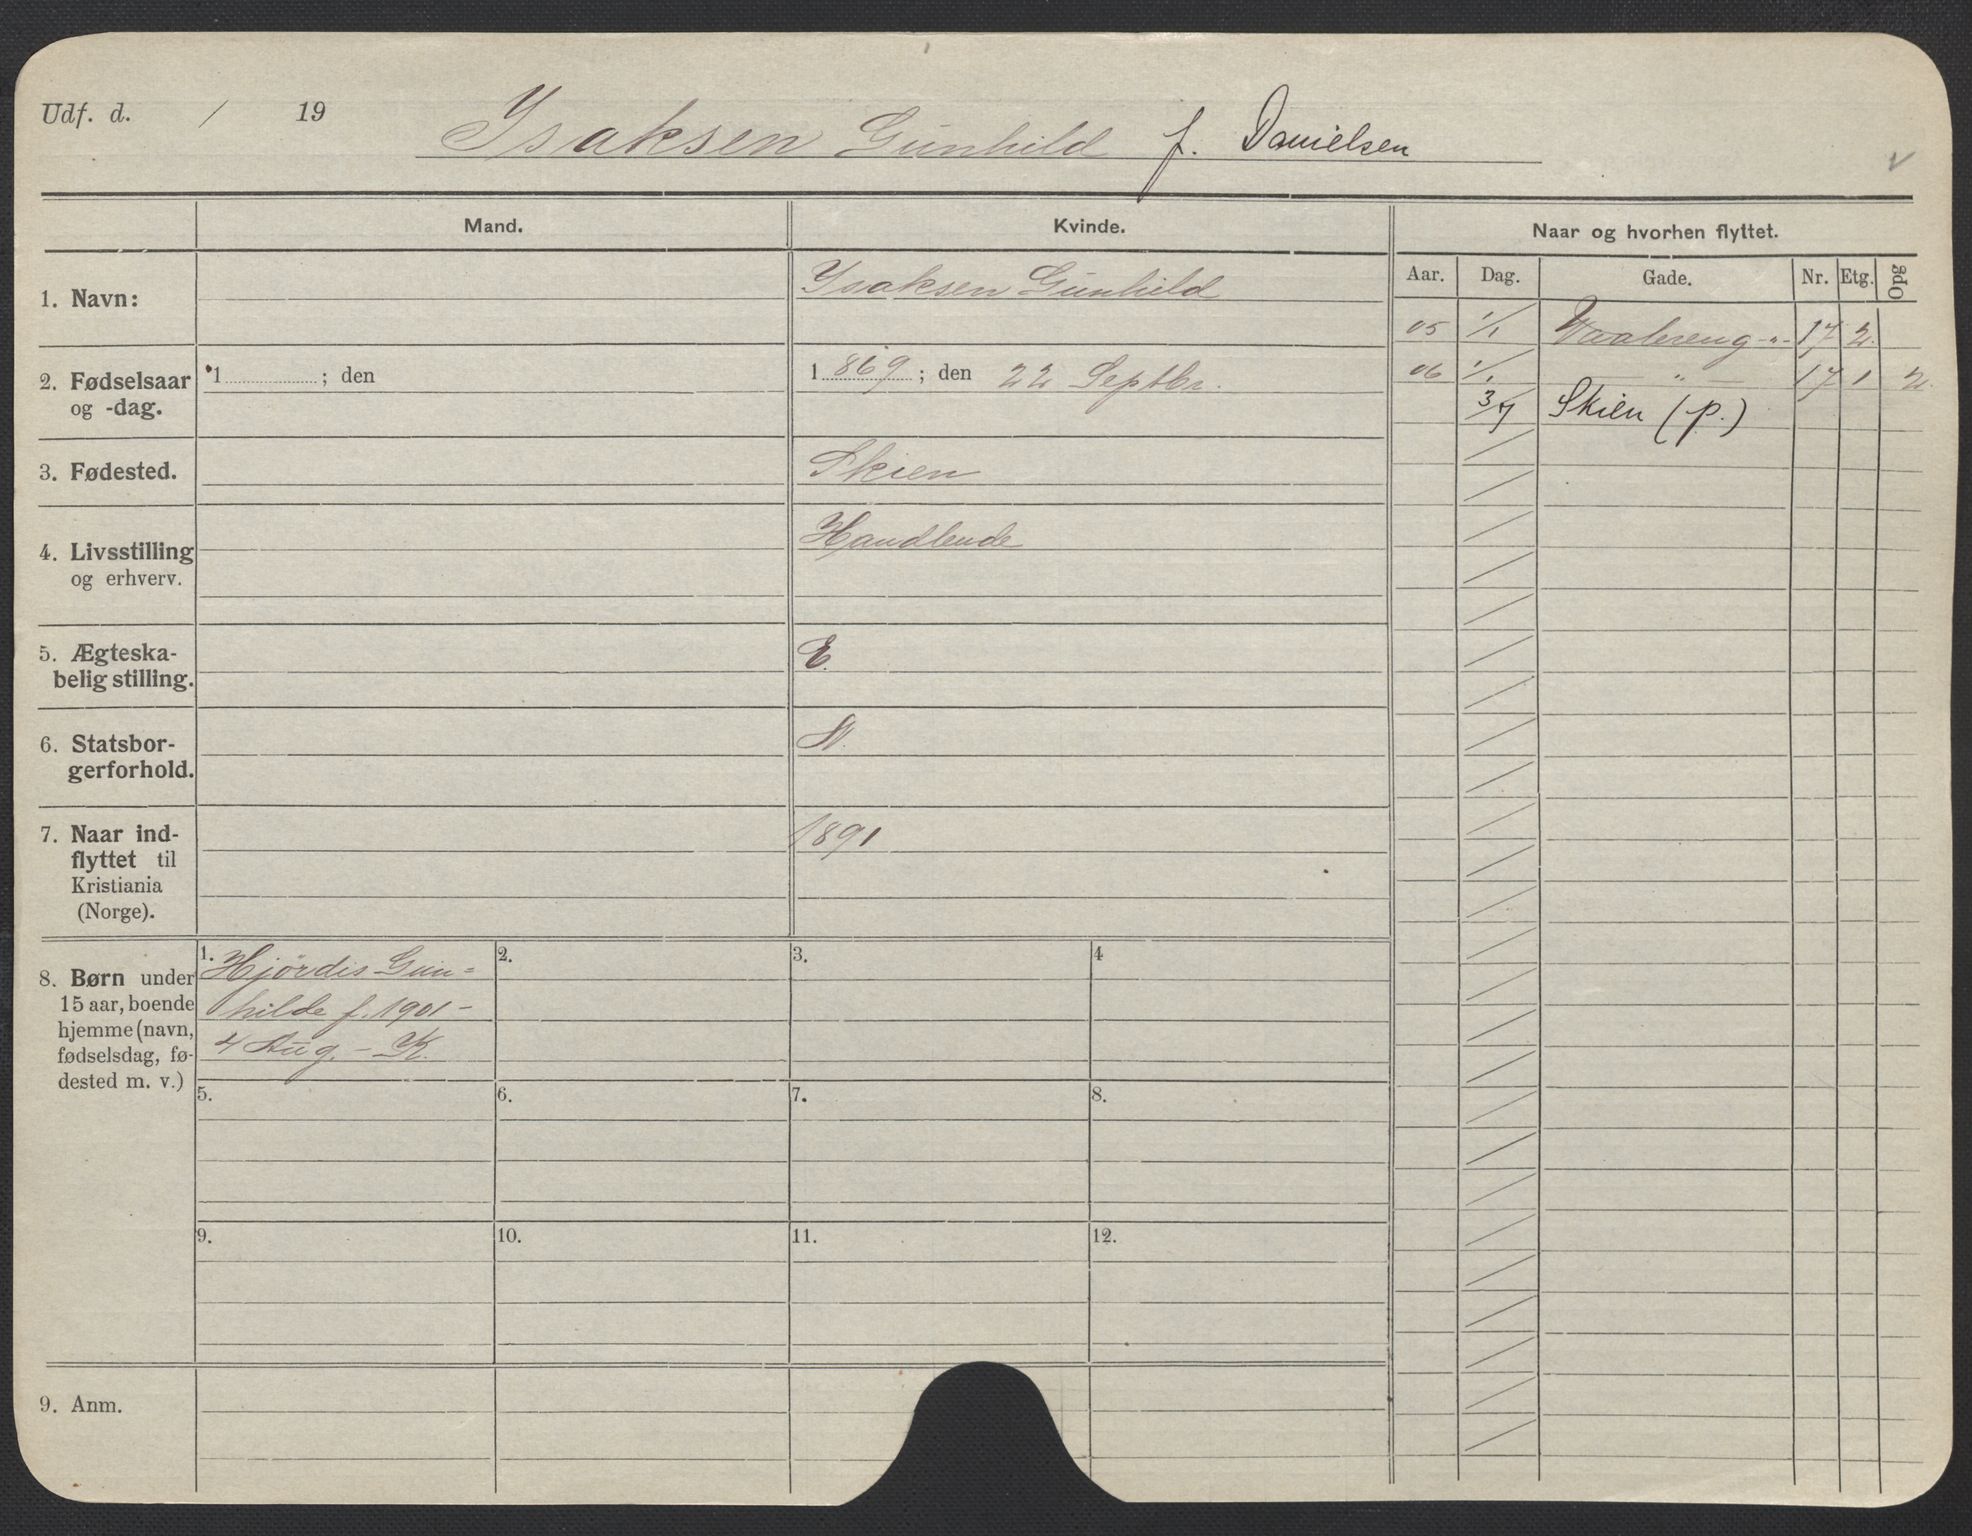 Udf. d. / 19
Isaksen Gunhild f. Danielsen
Mand. Kvinde. Naar og hvorhen flyttet.
Aar. Dag. Gade. Nr. Etg. Opg
1. Navn: Isaksen Gunhild
05 1/1 Vaalereng -"- 17 2.
2. Fødselsaar og -dag. 1 ; den
1 869 ; den 22 Septbr.
06 1/1 — " — 17 1 2.
3/7 Skien (p.)
3. Fødested. Skien
4. Livsstilling og erhverv. Handlende
5. Ægteska-
belig stilling. E.
6. Statsbor-
gerforhold. N.
7. Naar ind-
flyttet til
Kristiania
(Norge). 1891
8. Børn under
15 aar, boende
hjemme (navn,
fødselsdag, fø-
dested m. v.)
1. Hjördis Gun=
hilde f. 1901 -
4 Aug. - K.
2.
3.
4
5.
6.
7.
8.
9.
10.
11.
12.
9. Anm.